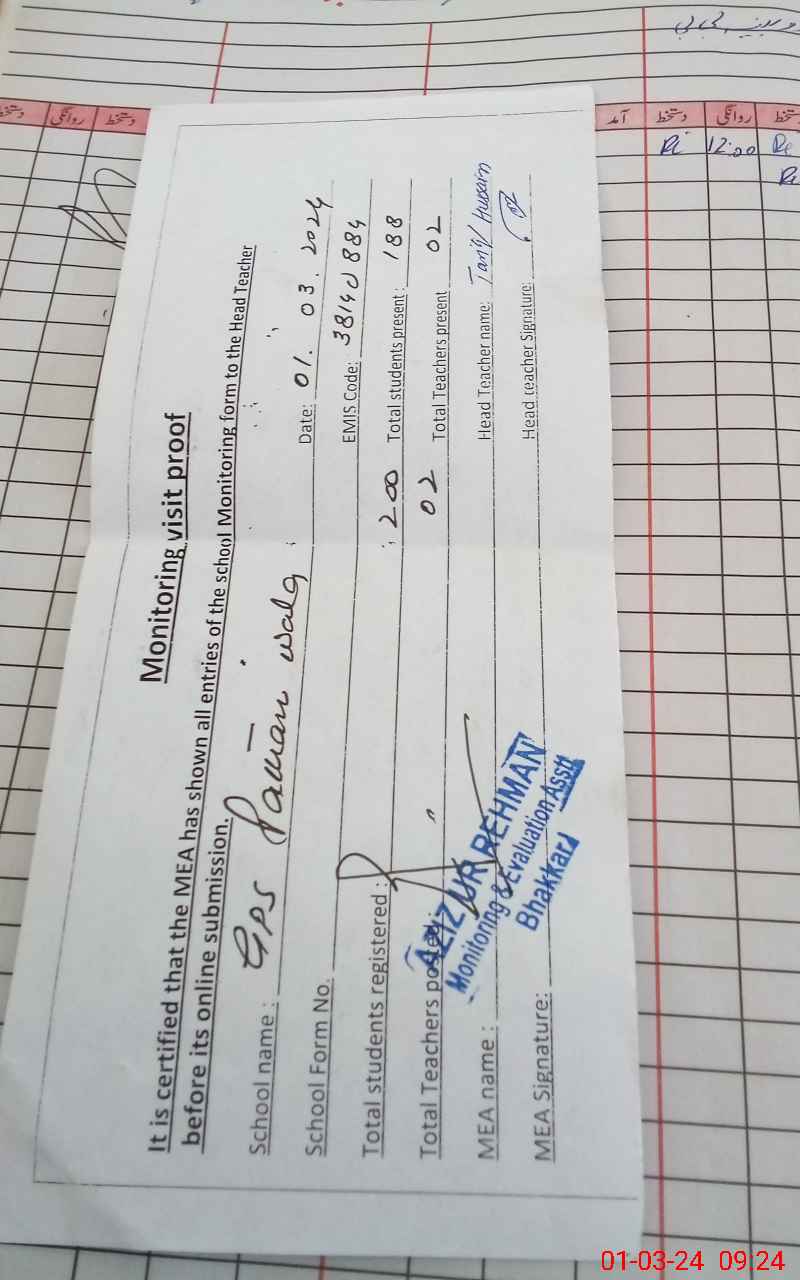 Monitoring visit proof
It is certified that the MEA has shown all entries of the school Monitoring form to the Head Teacher
before its online submission.
School name : GPS
Date: 01. 03. 2024
School Form No.
EMIS Code:
Total students registered : 200 Total students present : 188
Total Teachers posted : 02 Total Teachers present 02
MEA name : Head Teacher name: Hussain
MEA Signature: Head teacher Signature:
AZIZ UR REHMAN
Monitoring & Evaluation Asstt
Bhakkar
دستخط روانگی دستخط آمد دستخط روانگی دستخط
12:00
01-03-24 09:24